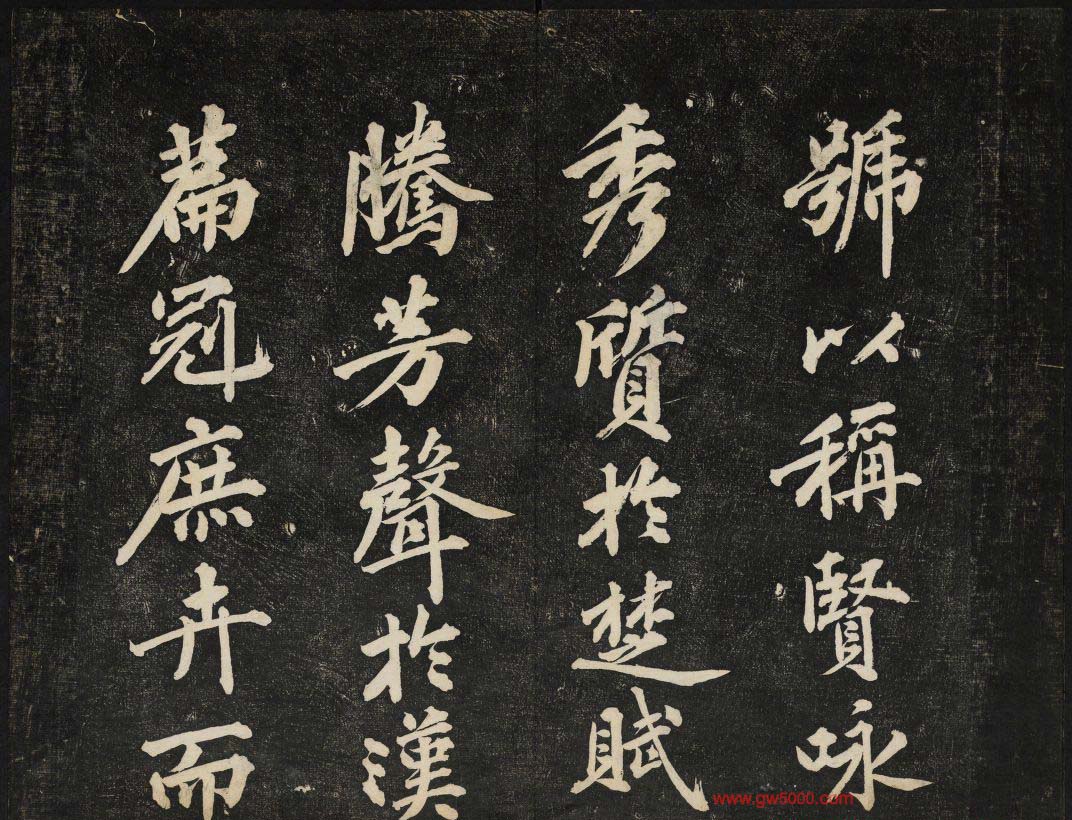 號以稱賢咏
秀質於楚賦
騰芳聲於漢
篇冠庶卉而
www.gw5000.com